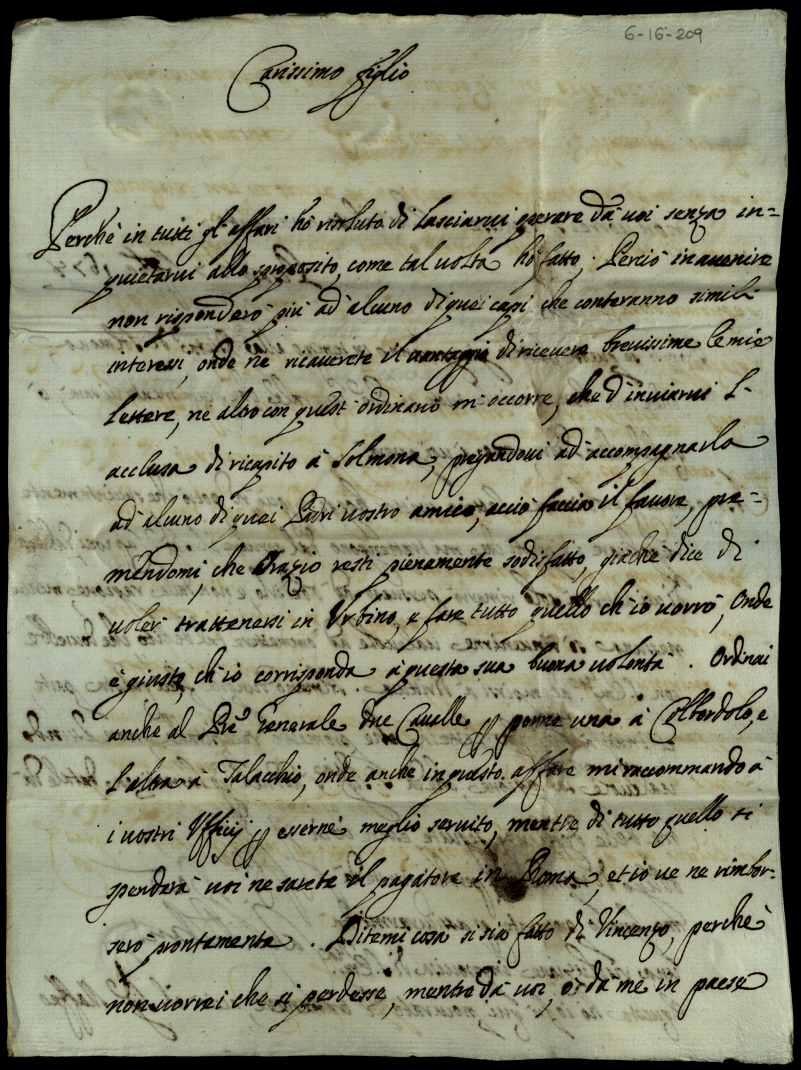 6-16-209
Carissimo figlio
Perche in tutti gl'affari hò risoluto di lasciarui operare dà uoi senza in=
quietarui allo sproposito, come tal uolta hò fatto; Perciò in auenire
non risponderò più ad' alcuno di quei capi che conteranno simili
interessi, onde ne ricauerete il uantaggio di riceuere breuissime le mie
lettere, ne altro con quest' ordinario m' occorre, che d' inuiarui l'
acclusa di ricapito à Solmona, pregandoui ad' accompagnarla
ad' alcuno di quei Padri uostro amico, acciò faccia il fauore, pre=
mendomi, che Orazio resti pienamente sodisfatto, giache dice di
uoler trattenersi in Urbino, e fare tutto quello ch' io uorrò, Onde
è giusto, ch' io corrisponda à questa sua buona uolontà. Ordinai
anche al Pre Generale due Caualle per porne una à Colbordolo, e
l'altra à Talacchio, onde anche in questo affare mi raccommando à
i uostri Ufficij per esserne meglio seruito, mentre di tutto quello si
spenderà uoi ne sarete il pagatore in Roma, et io ue ne rimbor=
serò prontamente. Ditemi cosa si sia fatto di Vincenzo, perche
non uorrei che si perdesse, mentre dà uoi, ò dà me in paese